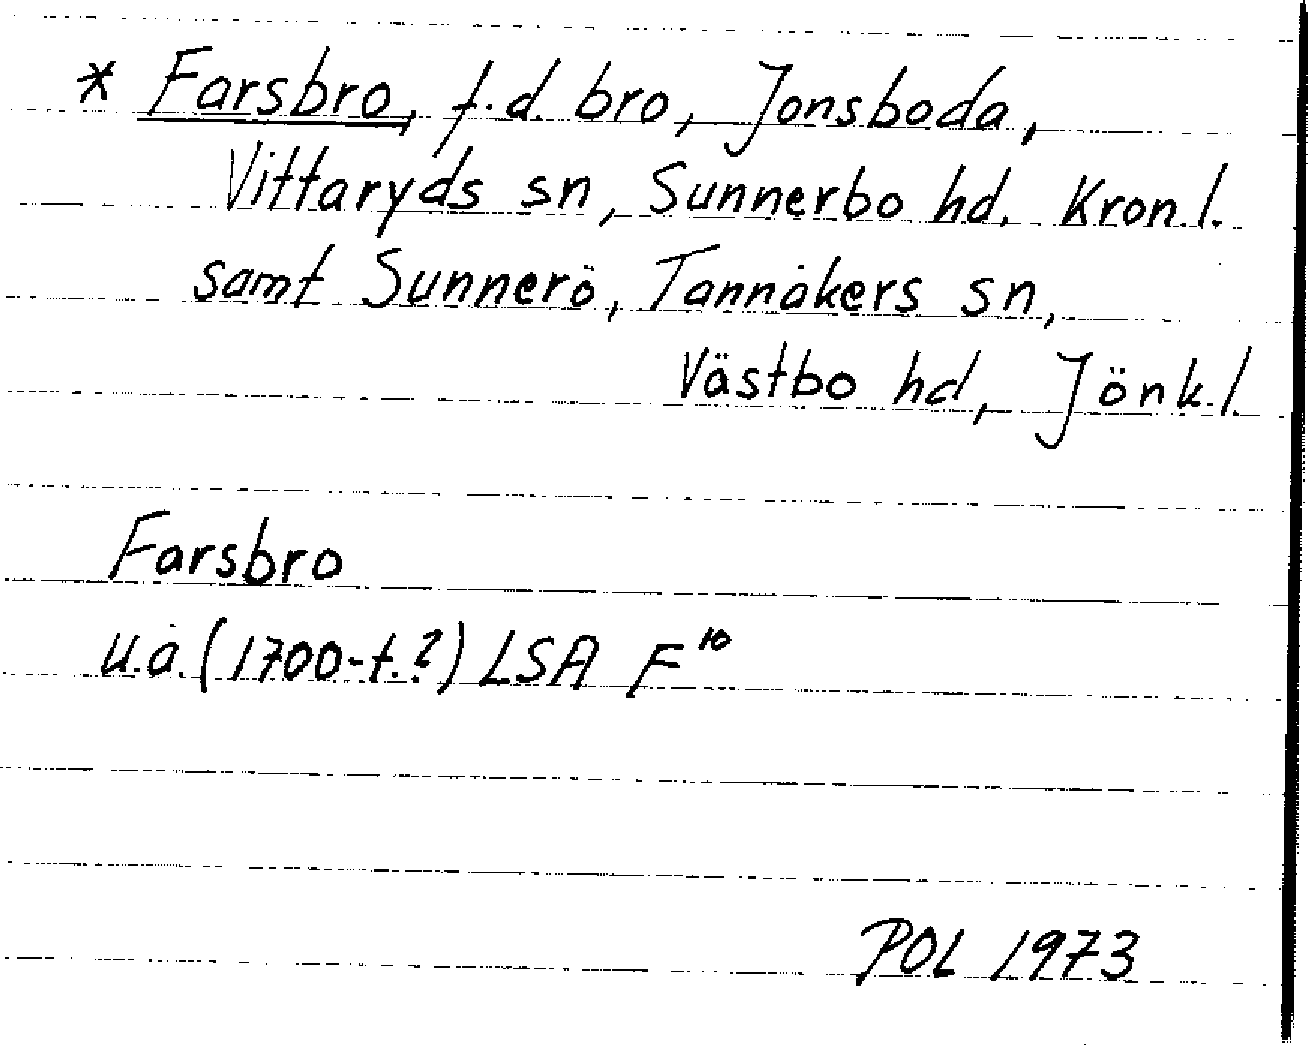 * Farsbro, f.d. bro, Jonsboda,
Vittaryds sn, Sunnerbo hd. Kron.l.
samt Sunnerö, Tannåkers sn,
Västbo hd, Jönk.l.
Farsbro
u.å. (1700-t.?) LSA F¹⁰
POL 1973